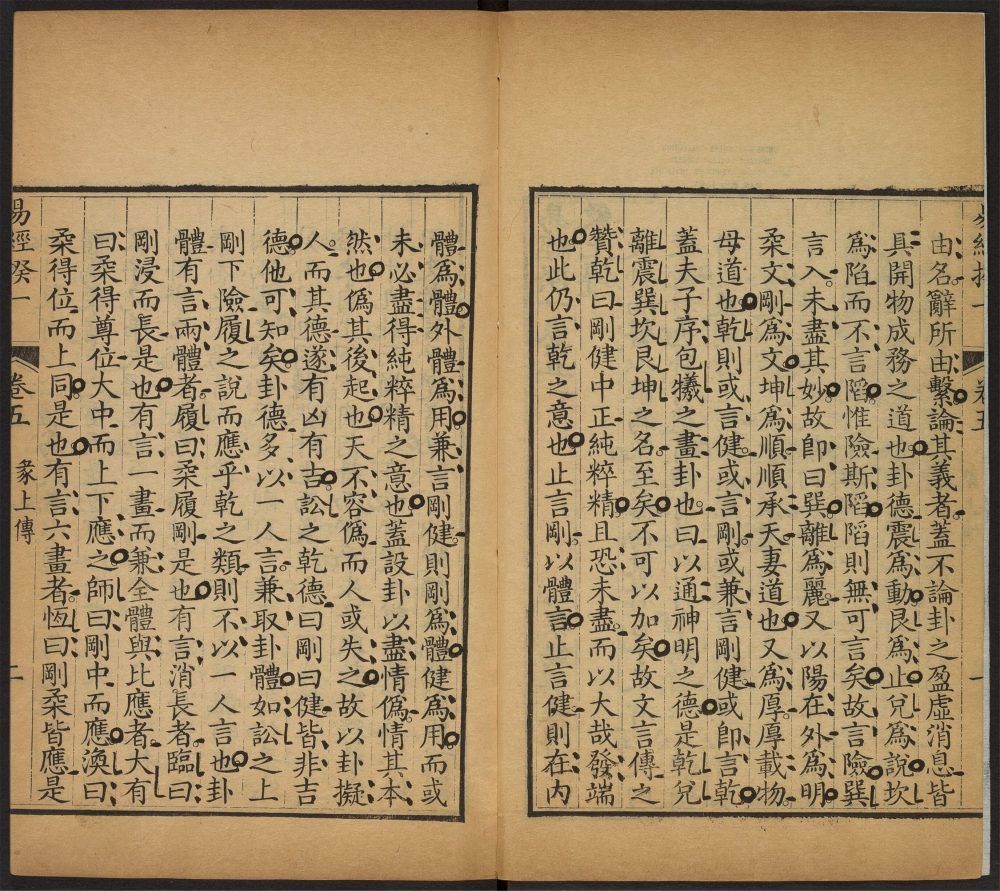 由名辭所由繫論其義者蓋不論卦之盈虛消息皆
具開物成務之道也卦德震爲動艮爲止兌爲說坎
爲陷而不言陷惟險斯陷陷則無可言矣故言險巽
言入未盡其妙故卽曰巽離爲麗又以陽在外爲明
柔文剛爲文坤爲順順承天妻道也又爲厚厚載物
母道也乾則或言健或言剛或兼言剛健或卽言乾
蓋夫子序包犧之畫卦也曰以通神明之德是乾兌
離震巽坎艮坤之名至矣不可以加矣故文言傳之
贊乾曰剛健中正純粹精且恐未盡而以大哉發端
也此仍言乾之意也止言剛以體言止言健則在內
體爲體外體爲用兼言剛健則剛爲體健爲用而或
未必盡得純粹精之意也蓋設卦以盡情僞情其本
然也僞其後起也天不容僞而人或失之故以卦擬
人而其德遂有凶有吉訟之乾德曰剛曰健皆非吉
德他可知矣卦德多以一人言兼取卦體如訟之上
剛下險履之說而應乎乾之類則不以一人言也卦
體有言兩體者履曰柔履剛是也有言消長者臨曰
剛浸而長是也有言一畫而兼全體與比應者大有
曰柔得尊位大中而上下應之師曰剛中而應渙曰
柔得位而上同是也有言六畫者恆曰剛柔皆應是
易經癸一
卷五
彖上傳
二
卷五
一